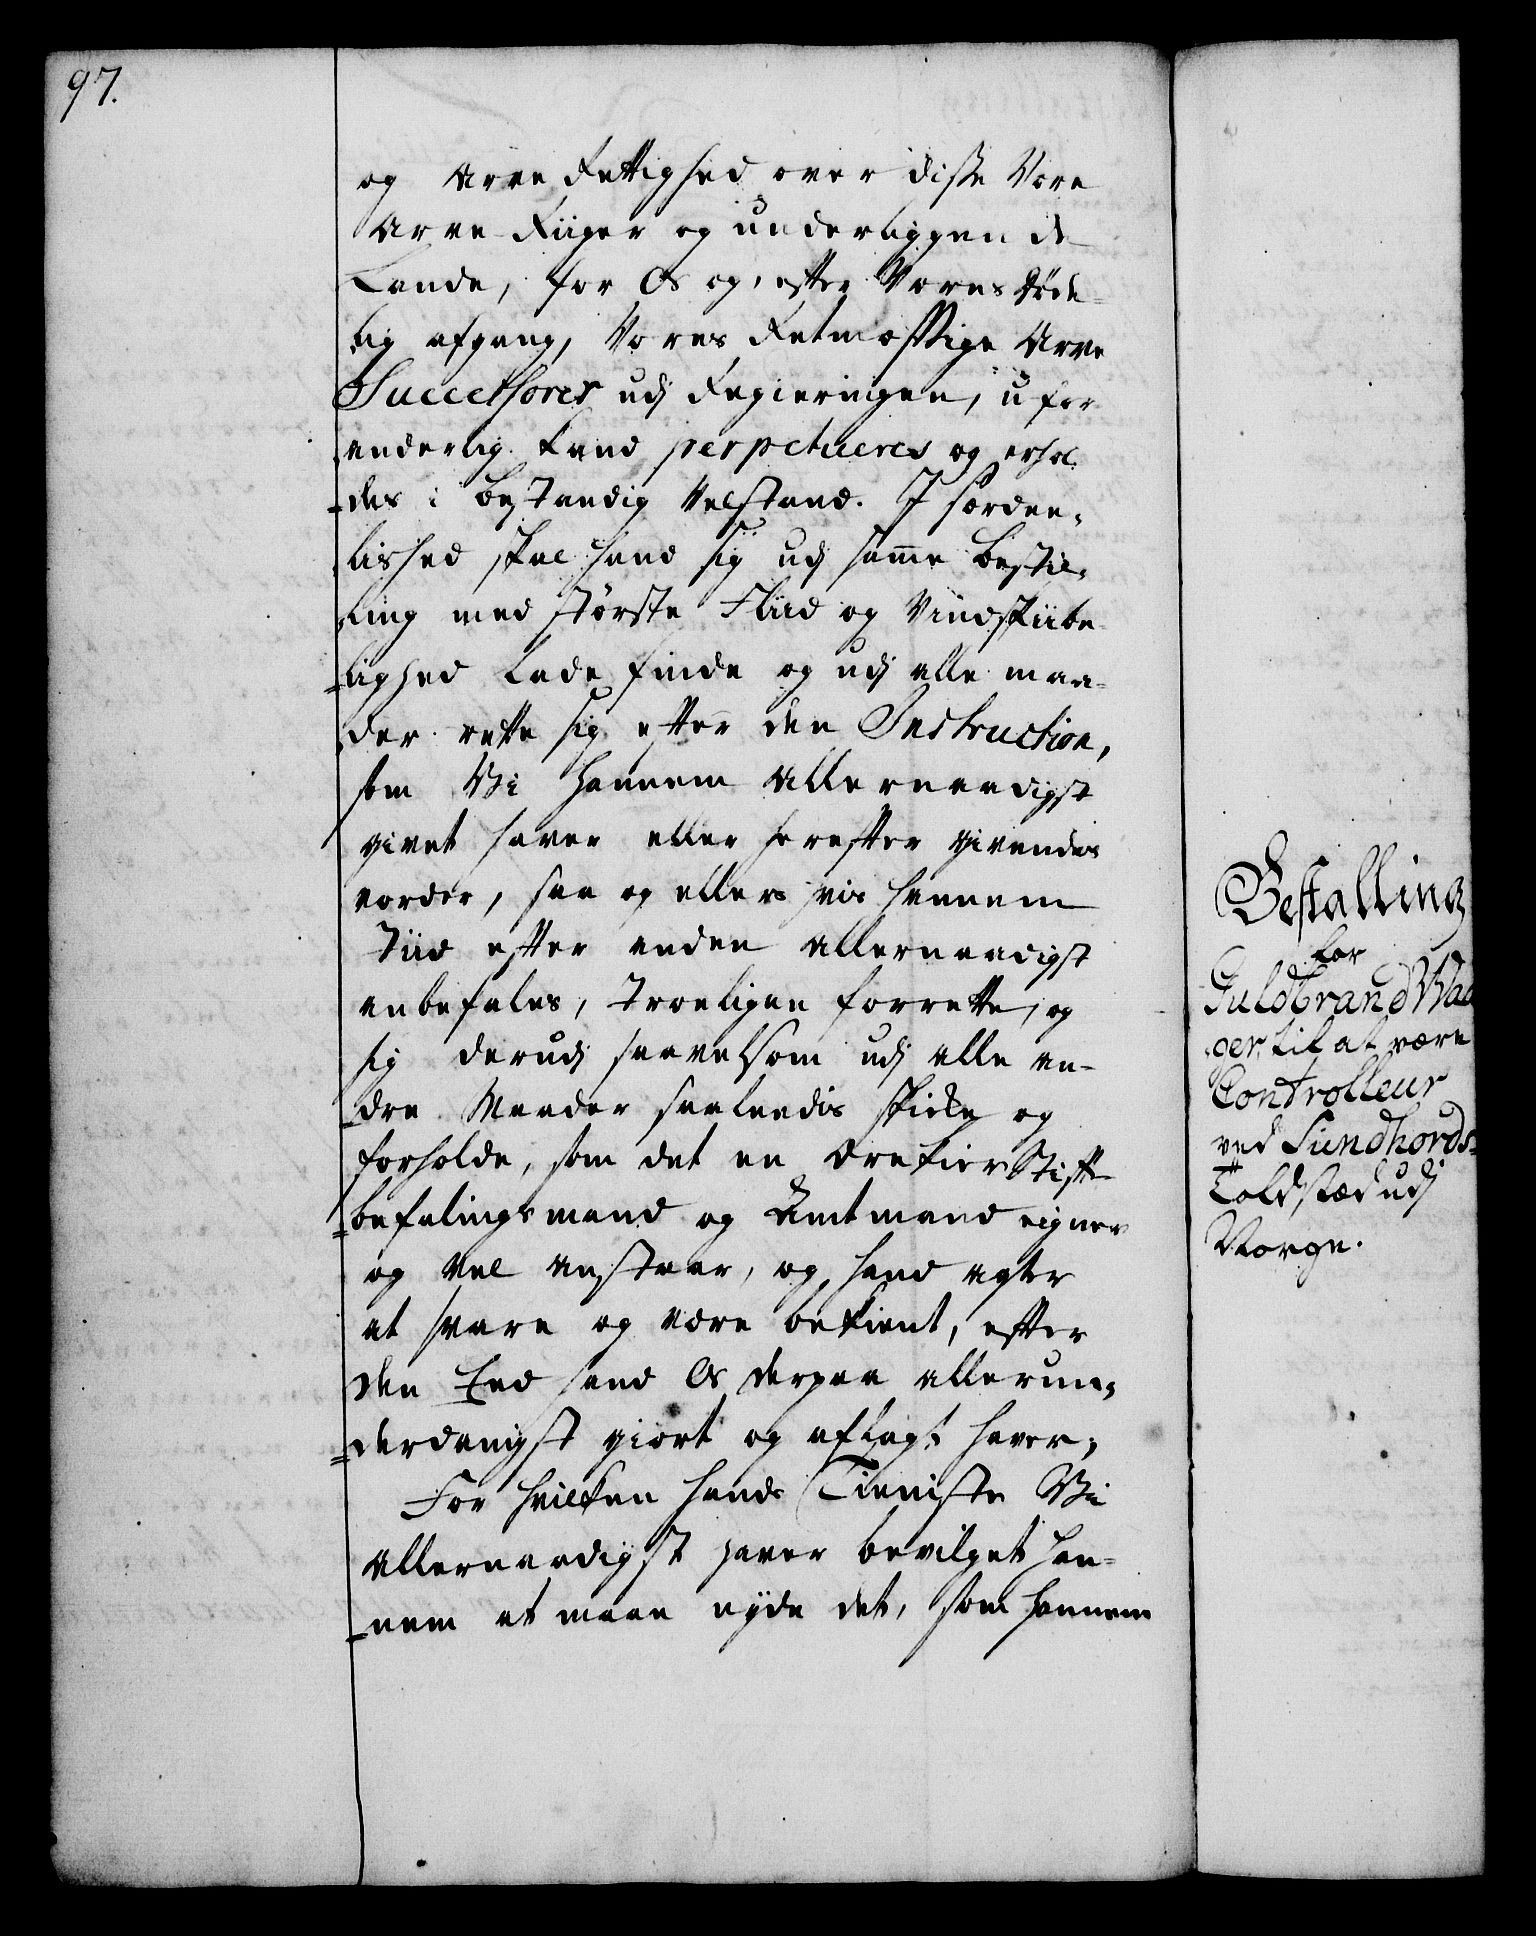 97.
og Arve Rettighed over disse Vore
Arve-Riiger og underliggende
Lande, for Os og, efter Vores døde-
lig afgang, Vores Retmæssige Arve
Successores udj Regieringen, ufor-
anderlig kand perpetueres og erhol-
des i bestandig Velstand. I særdee-
lished skal hand sig udj samme bestil-
ling med største Fliid og Vindskibe-
lighed lade finde og udj alle maa-
der rette sig efter den Instruction,
som Vi hannem Allernaadigst
givet haver eller herefter givendes
vorder, saa og ellers hvis hannem
Tiid efter anden allernaadigst
anbefales, troeligen forrette, og
sig derudj saavelsom udj alle an-
dre Maader saaleedis skicke og
forholde, som det en ærekier Stift-
befalingsmand og Amtmand eigner
og vel anstaar, og hand agter
at svare og være bekient, efter
den Eed hand Os derpaa allerun-
derdanigst giort og aflagt haver;
For hvilken hands Tieniste Vi
allernaadigst haver bevilget han-
nem at maae nyde det, som hannem
Bestalling
for
Guldbrand Waa
ger til at være
Controlleur
ved Sundhords-
Toldsted udj
Norge.